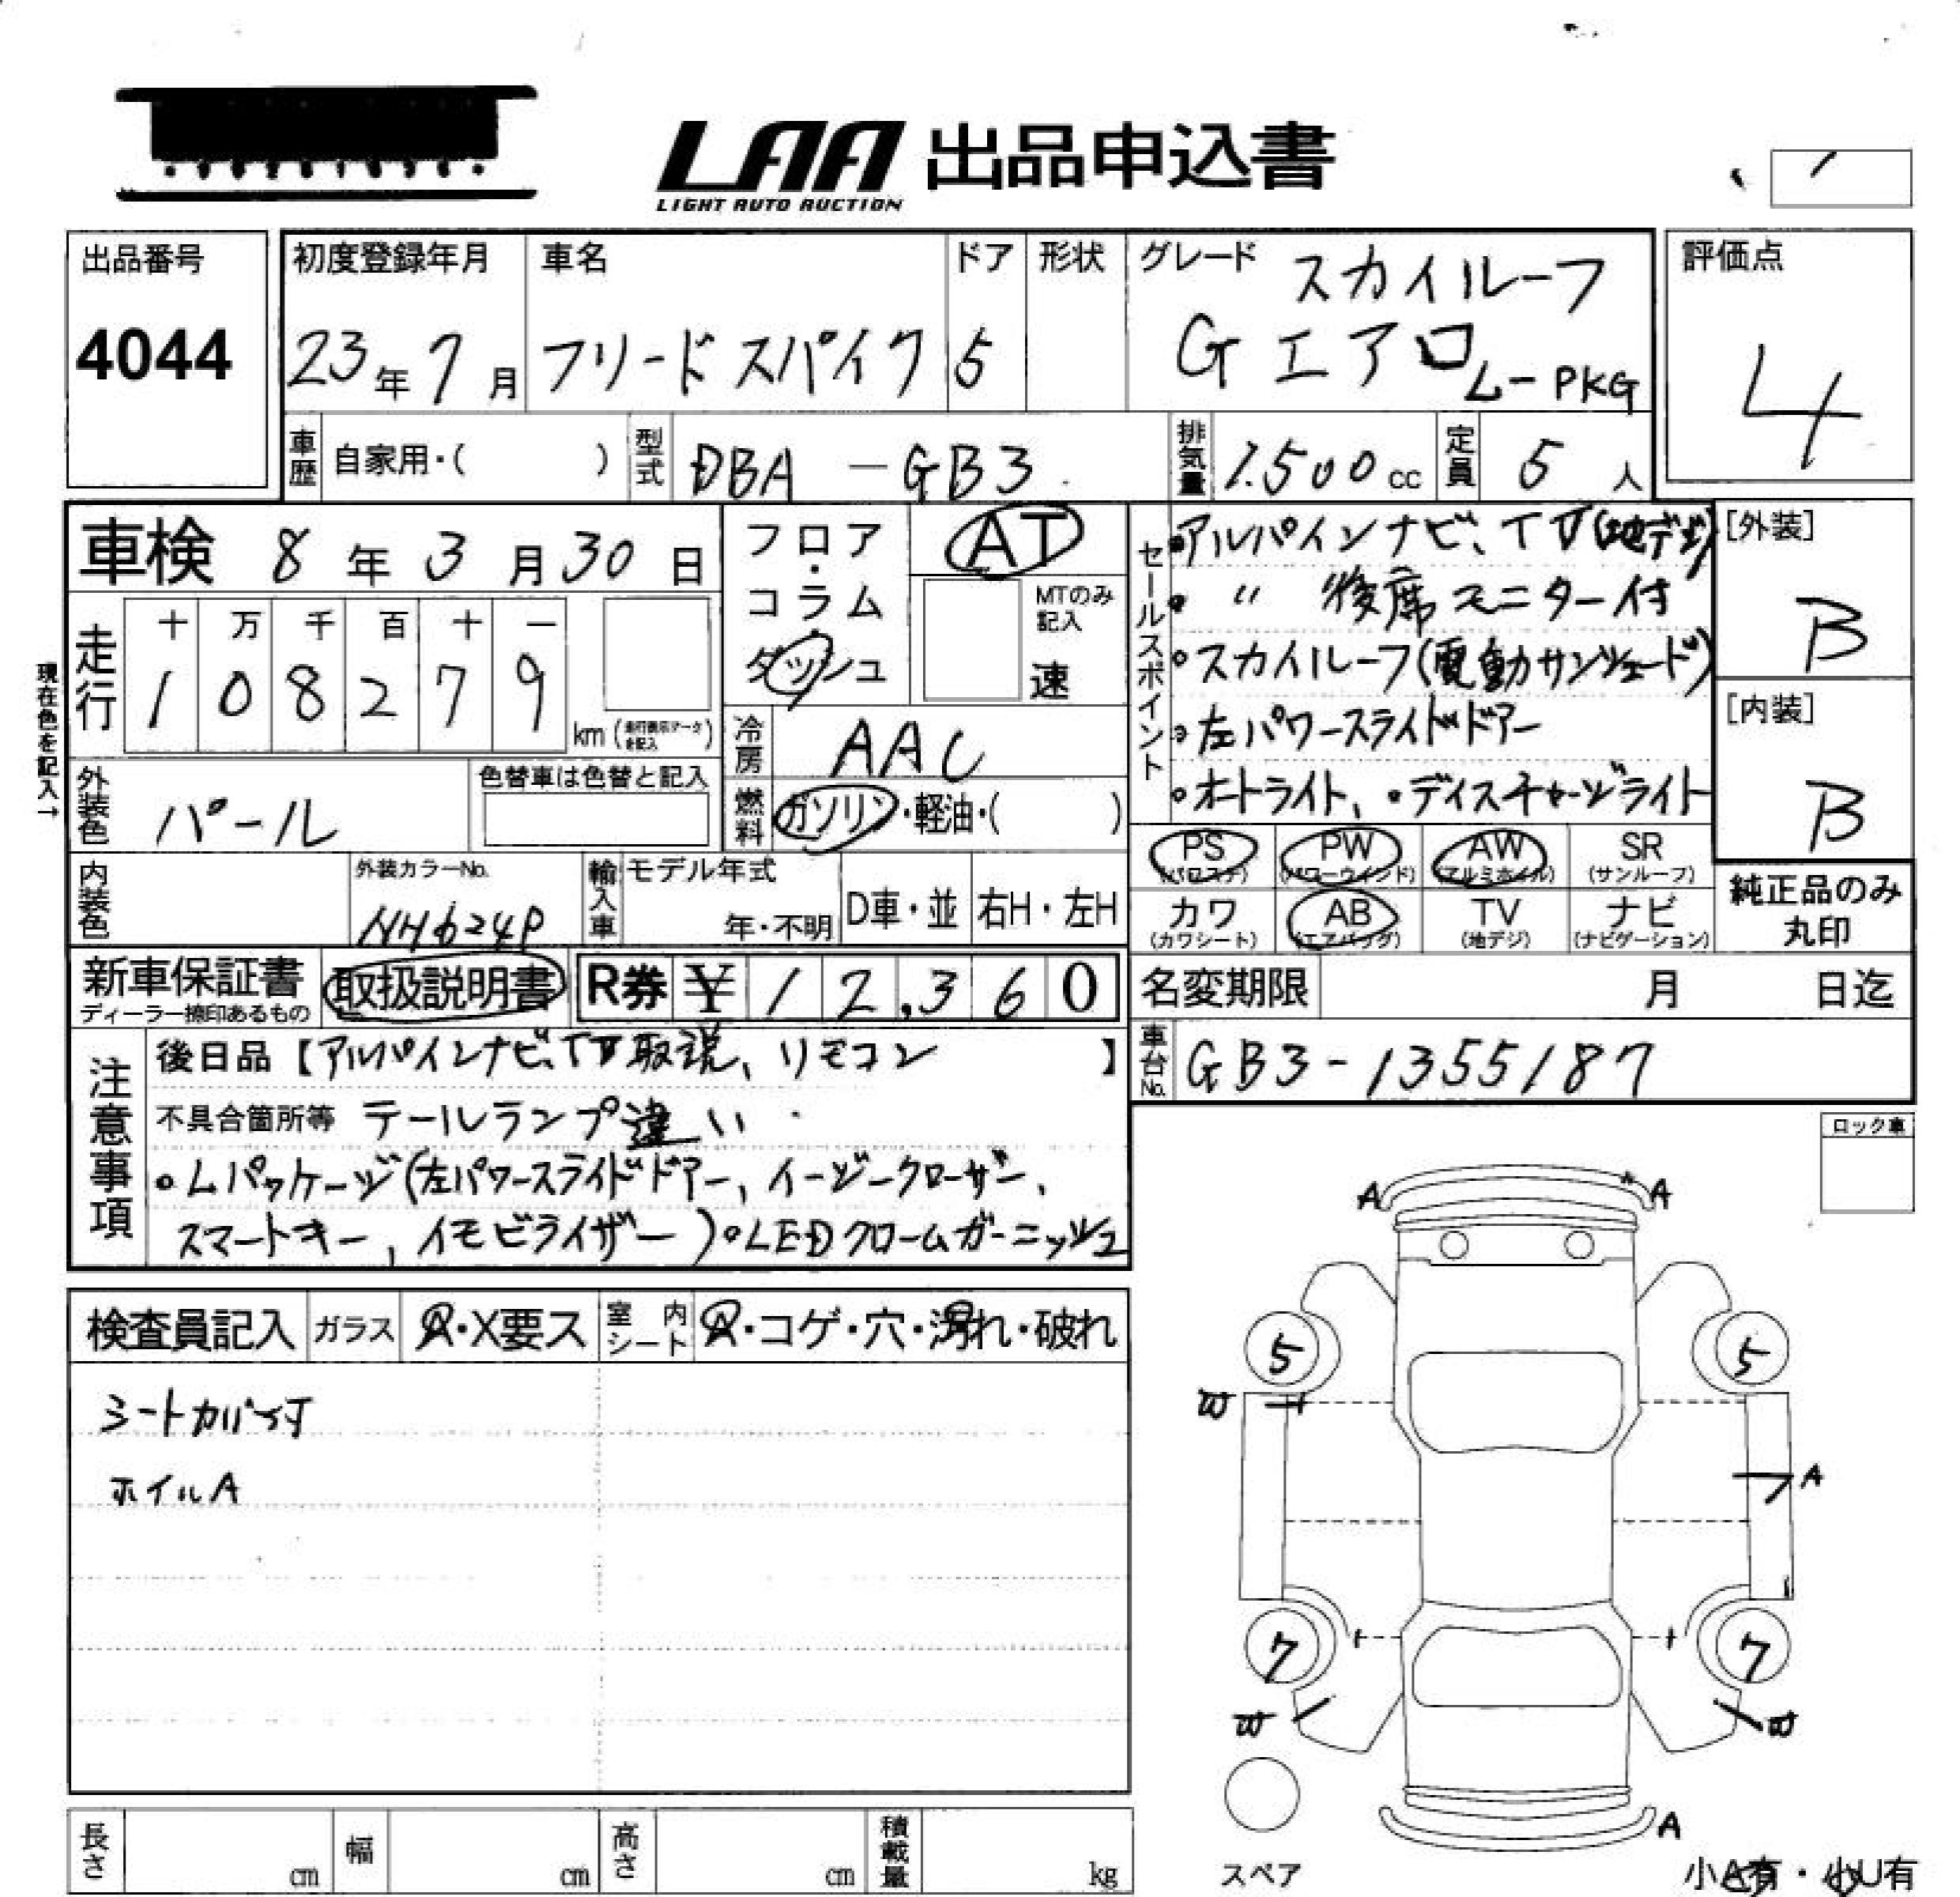 LAA 出品申込書
LIGHT AUTO AUCTION
出品番号
4044
初度登録年月
23年7月
車名
フリードスパイク
ドア
5
形状
グレード
スカイルーフ
Gエアロ L-PKG
評価点
4
車歴
自家用・( )
型式
DBA-GB3
排気量
1.500cc
定員
5人
車検 8年3月30日
現在色を記入→
走行
十 万 千 百 十 一
1 0 8 2 7 9
km
フロア・
コラム
ダッシュ
AT
MTのみ
記入
速
冷房
AAC
燃料
ガソリン・軽油・( )
外装色
パール
色替車は色替と記入
内装色
外装カラーNo.
NH624P
輸入車
モデル年式
年・不明
D車・並
右H・左H
セールスポイント
・アルパインナビ、TV(地デジ)
・ 〃 後席モニター付
・スカイルーフ(電動サンシェード)
・左パワースライドドアー
・オートライト、・ディスチャージライト
[外装]
B
[内装]
B
PS (パワステ)
PW (パワーウインド)
AW (アルミホイル)
SR (サンルーフ)
カワ (カワシート)
AB (エアバッグ)
TV (地デジ)
ナビ (ナビゲーション)
純正品のみ
丸印
新車保証書
ディーラー捺印あるもの
取扱説明書
R券 ¥12,360
名変期限 月 日迄
車台No.
GB3-1355187
注意事項
後日品【アルパインナビ、TV取説、リモコン】
不具合箇所等 テールランプ違い
・Lパッケージ(左パワースライドドアー、イージークローザー、
スマートキー、イモビライザー)・LEDクロームガーニッシュ
ロック車
A A
5 5
W
A
7 7
W W
A
スペア
小A有・小U有
検査員記入
ガラス
A・X要ス
室内シート
A・コゲ・穴・汚れ・破れ
シートカバー付
ホイルA
長さ cm
幅 cm
高さ cm
積載量 kg